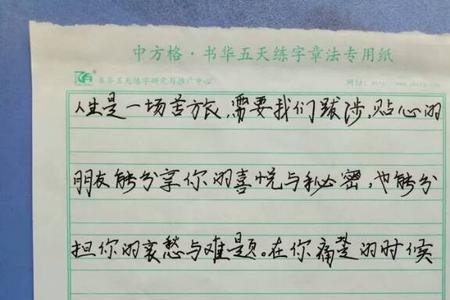 中方格·书华五天练字章法专用纸
书华五天练字研究与推广中心
人生是一场苦旅,需要我们跋涉,贴心的
朋友能分享你的喜悦与秘密,也能分
担你的哀愁与难题。在你痛楚的时候